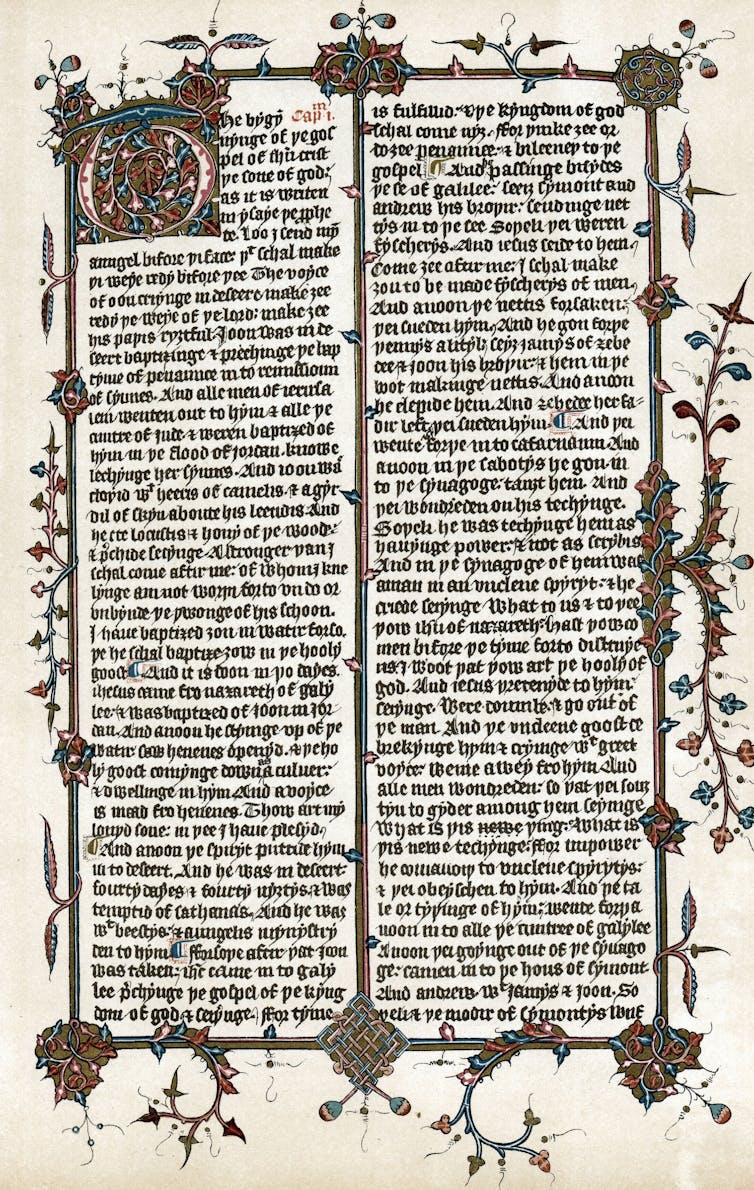 The bygyn̄ Cap.m i.
nynge of þe gos
pel of ihū crist
þe sone of god:
as it is writen
in ysaye þe p̄phe
te. Loo J send my
aungel bifore þi face: þt schal make
þi weye redy bifore þee The voyce
of oon criynge in deseert make ȝee
redy þe weye of þe lord: make ȝee
his paþis ryȝtful. Joon was in de
seert baptisinge ⁊ prechinge þe bap
tyme of penaunce in to remissioun
of synnes. And alle men of ierusa
lem wenten out to hym ⁊ alle þe
cuntre of Jude ⁊ weren baptized of
hym in þe flood of Jordan. knowe
lechynge her synnes. And ioon was
cloþid wt heeris of camelis. ⁊ a gyr
dil of skyn aboute his leendis And
he ete locustis ⁊ hony of þe wode:
⁊ p̄chide seiynge. A stronger þan J
schal come aftir me: of whom J kne
lynge am not worþi forto vndo or
vnbynde þe þwonge of his schoon.
J haue baptized ȝou in watir forso.
þe he schal baptize ȝow in þe hooly
goost And it is doon in þo dayes.
ihesus came fro nazareth of galy
lee: ⁊ was baptized of Joon in Jor
dan. And anoon he stiynge vp of þe
watir saw heuenes openyd. ⁊ þe ho
ly goost comynge down as a culuer:
⁊ dwellinge in hym And a voyce
is maad fro heuenes. Thow art my
louyd sone: in þee J haue plesyd.
And anoon þe spiryt puttide hym
in to desert. And he was in desert
fourty dayes ⁊ fourty nyȝtys: ⁊ was
temptid of sathanas. And he was
wt beestys: ⁊ aungelis mynystry
den to hym fforsoþe after þat Joon
was taken: ihc̄ came in to galy
lee p̄chynge þe gospel of þe kyng
dom of god ⁊ seiynge. ffor tyme
is fulfillid: ⁊ þe kyngdom of god
schal come nyȝ. ffor þinke ȝee or
do ȝee penaunce: ⁊ bileeuey to þe
gospel And he passinge bisydes
þe se of galilee: seeȝ symont and
andrew his broþir. sendinge net
tys in to þe see Soþeli þei weren
fyscherys. And iesus seide to hem.
Come ȝee aftur me: J schal make
ȝou to be made fyscherys of men.
And anoon þe nettis forsaken:
þei sueden hym. And he gon forþe
þennys a lityl: seiȝ jamys of zebe
dee ⁊ joon his broþir: ⁊ hem in þe
boot makinge nettis. And anoon
he clepide hem. And zebedee her fa-
dir left: þei sueden hym And þei
wente forþe in to cafarnaum And
anoon in þe sabotys he gon in
to þe synagoge: tauȝt hem. And
þei wondreden on his techynge.
Soþeli he was techynge hem as
hauynge power: ⁊ not as scrybis
And in þe synagoge of hem was
a man in an vnclene spyryt: ⁊ he
criede seiynge What to us ⁊ to þee
þow ihū of nazareth: hast þow co
men bifore þe tyme forto distruye
us: J woot þat þow art þe hooly of
god. And iesus þretenyde to hym:
seiynge. Were doumb: ⁊ go out of
þe man. And þe vnclene goost de
brekynge hym ⁊ cryinge wt greet
voyce: wente a wey fro hym And
alle men wondreden: so þat þei souȝ
tyn to gyder among hem seiynge
What is þis newe þing: What is
þis newe techynge: ffor in power
he comaundiþ to vnclene spyrytys:
⁊ þei obeyschen to hym. And þe ta
le or tyþinge of hym: wente forþ a
noon in to alle þe cuntree of galylee
Anoon þei goynge out of þe synago
ge: camen in to þe hous of symont
And andrew wt Jamys ⁊ Joon. So
þeli ⁊ þe modir of symontys wijf